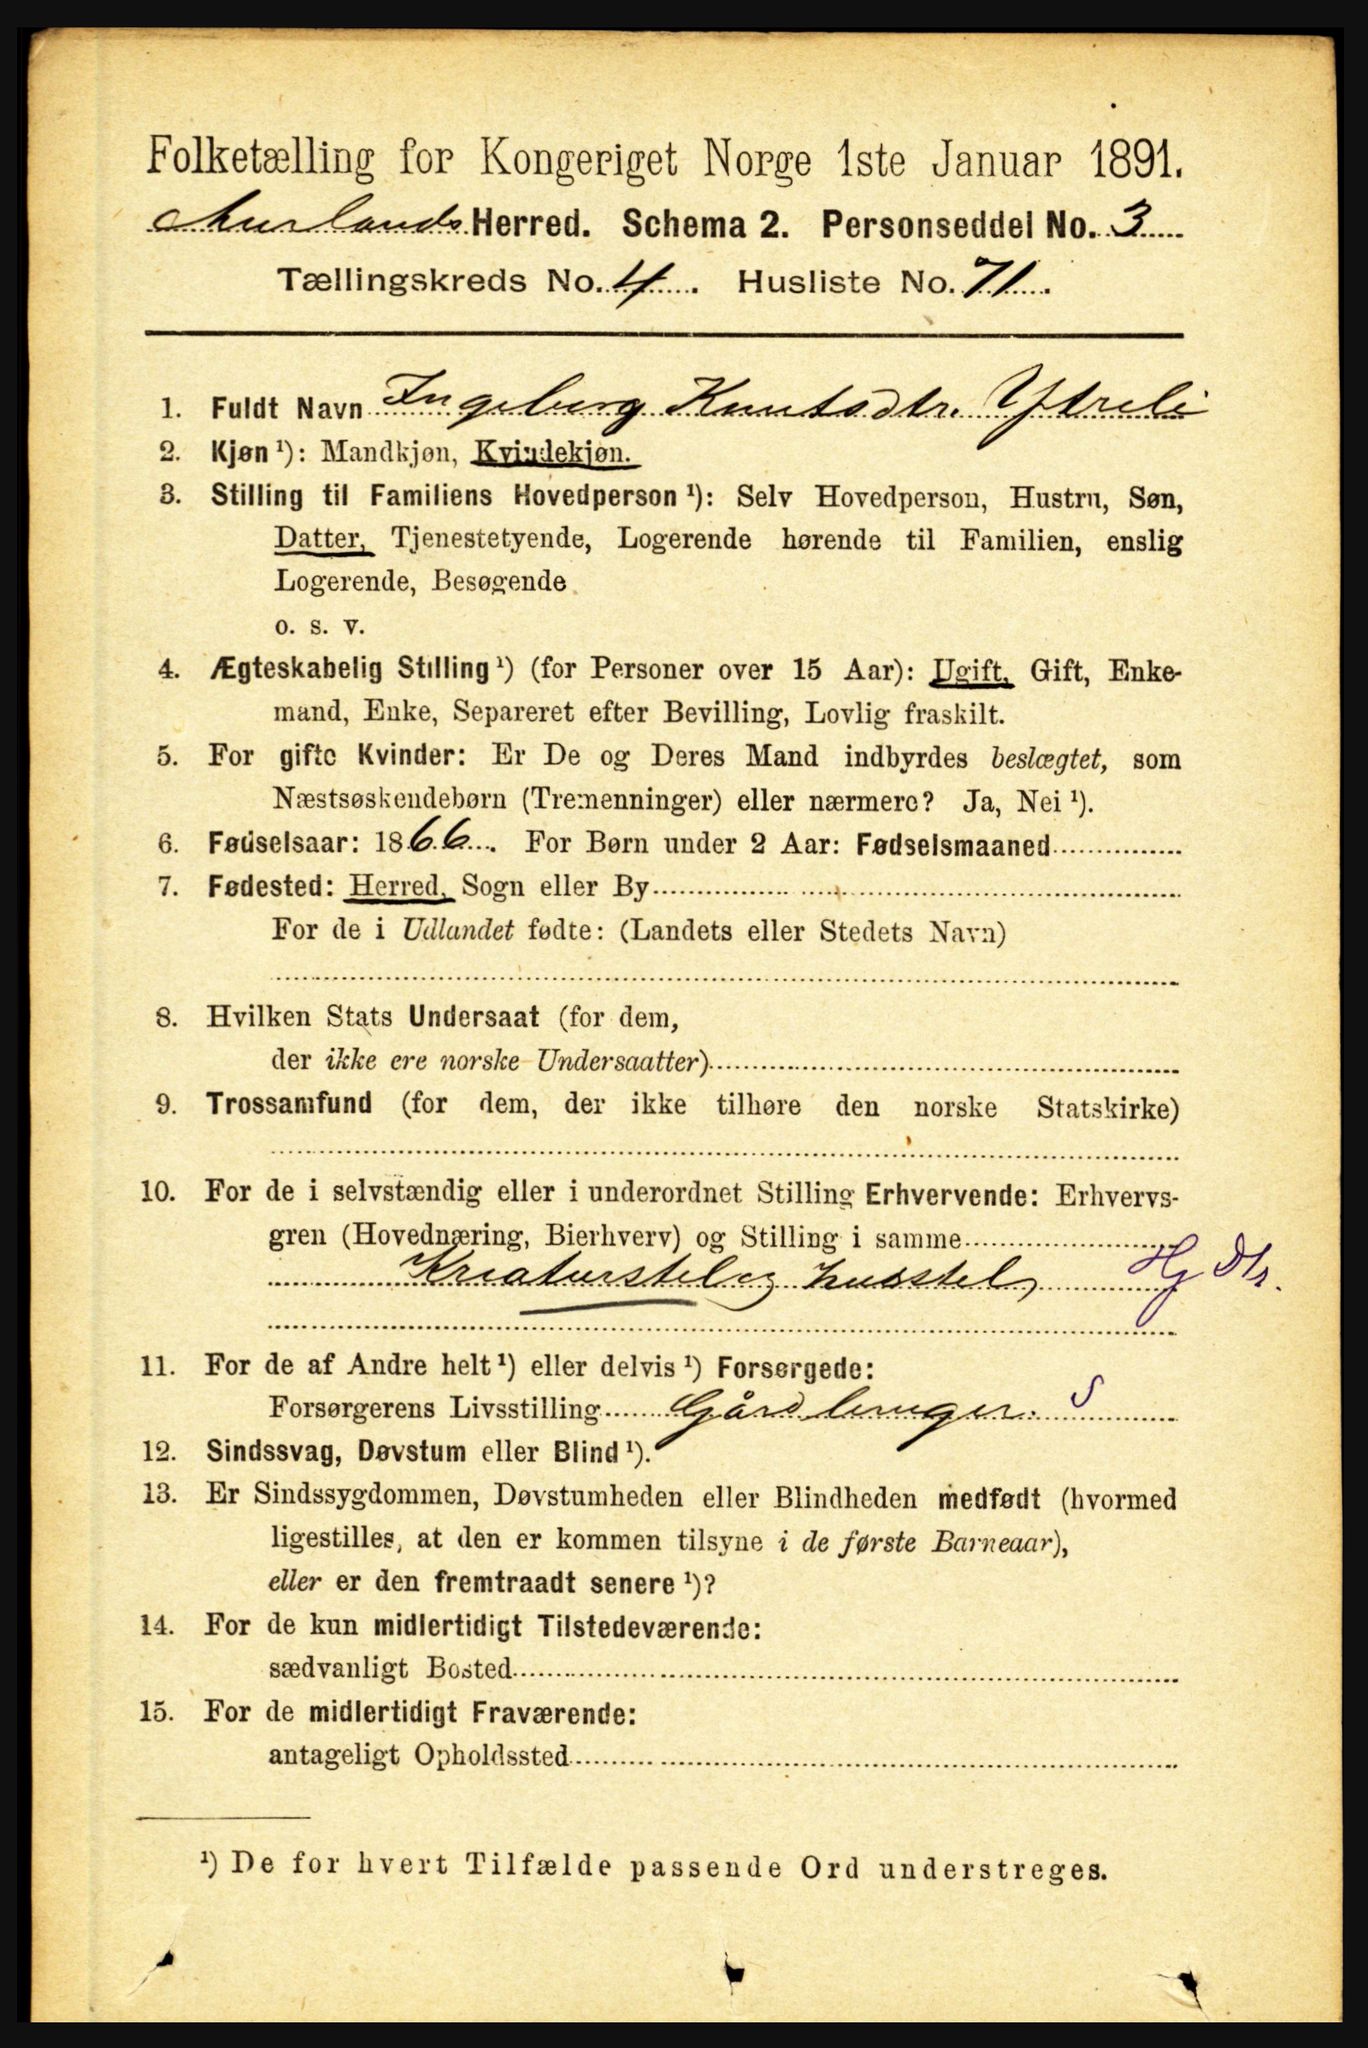 Folketælling for Kongeriget Norge 1ste Januar 1891.
Aurlands Herred. Schema 2. Personseddel No. 3
Tællingskreds No. 4. Husliste No. 71.
1. Fuldt Navn Ingeborg Knutsdtr. Ytreli
2. Kjøn ¹): Mandkjøn, Kvindekjøn.
3. Stilling til Familiens Hovedperson ¹): Selv Hovedperson, Hustru, Søn,
Datter, Tjenestetyende, Logerende hørende til Familien, enslig
Logerende, Besøgende
o. s. v.
4. Ægteskabelig Stilling ¹) (for Personer over 15 Aar): Ugift, Gift, Enke-
mand, Enke, Separeret efter Bevilling, Lovlig fraskilt.
5. For gifte Kvinder: Er De og Deres Mand indbyrdes beslægtet, som
Næstsøskendebørn (Tremenninger) eller nærmere? Ja, Nei ¹).
6. Fødselsaar: 1866. For Børn under 2 Aar: Fødselsmaaned
7. Fødested: Herred, Sogn eller By
For de i Udlandet fødte: (Landets eller Stedets Navn)
8. Hvilken Stats Undersaat (for dem,
der ikke ere norske Undersaatter)
9. Trossamfund (for dem, der ikke tilhøre den norske Statskirke)
10. For de i selvstændig eller i underordnet Stilling Erhvervende: Erhvervs-
gren (Hovednæring, Bierhverv) og Stilling i samme
Kreaturstel og husstel Hg Dtr.
11. For de af Andre helt ¹) eller delvis ¹) Forsørgede:
Forsørgerens Livsstilling Gårdbruger. S
12. Sindssvag, Døvstum eller Blind ¹).
13. Er Sindssygdommen, Døvstumheden eller Blindheden medfødt (hvormed
ligestilles, at den er kommen tilsyne i de første Barneaar),
eller er den fremtraadt senere ¹)?
14. For de kun midlertidigt Tilstedeværende:
sædvanligt Bosted
15. For de midlertidigt Fraværende:
antageligt Opholdssted
¹) De for hvert Tilfælde passende Ord understreges.